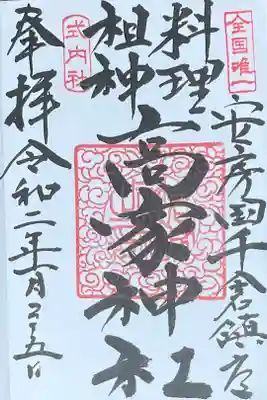 全国唯一
安房国千倉鎮座
料理
祖神
高家神社
式内社
奉拝 令和二年 月 五日